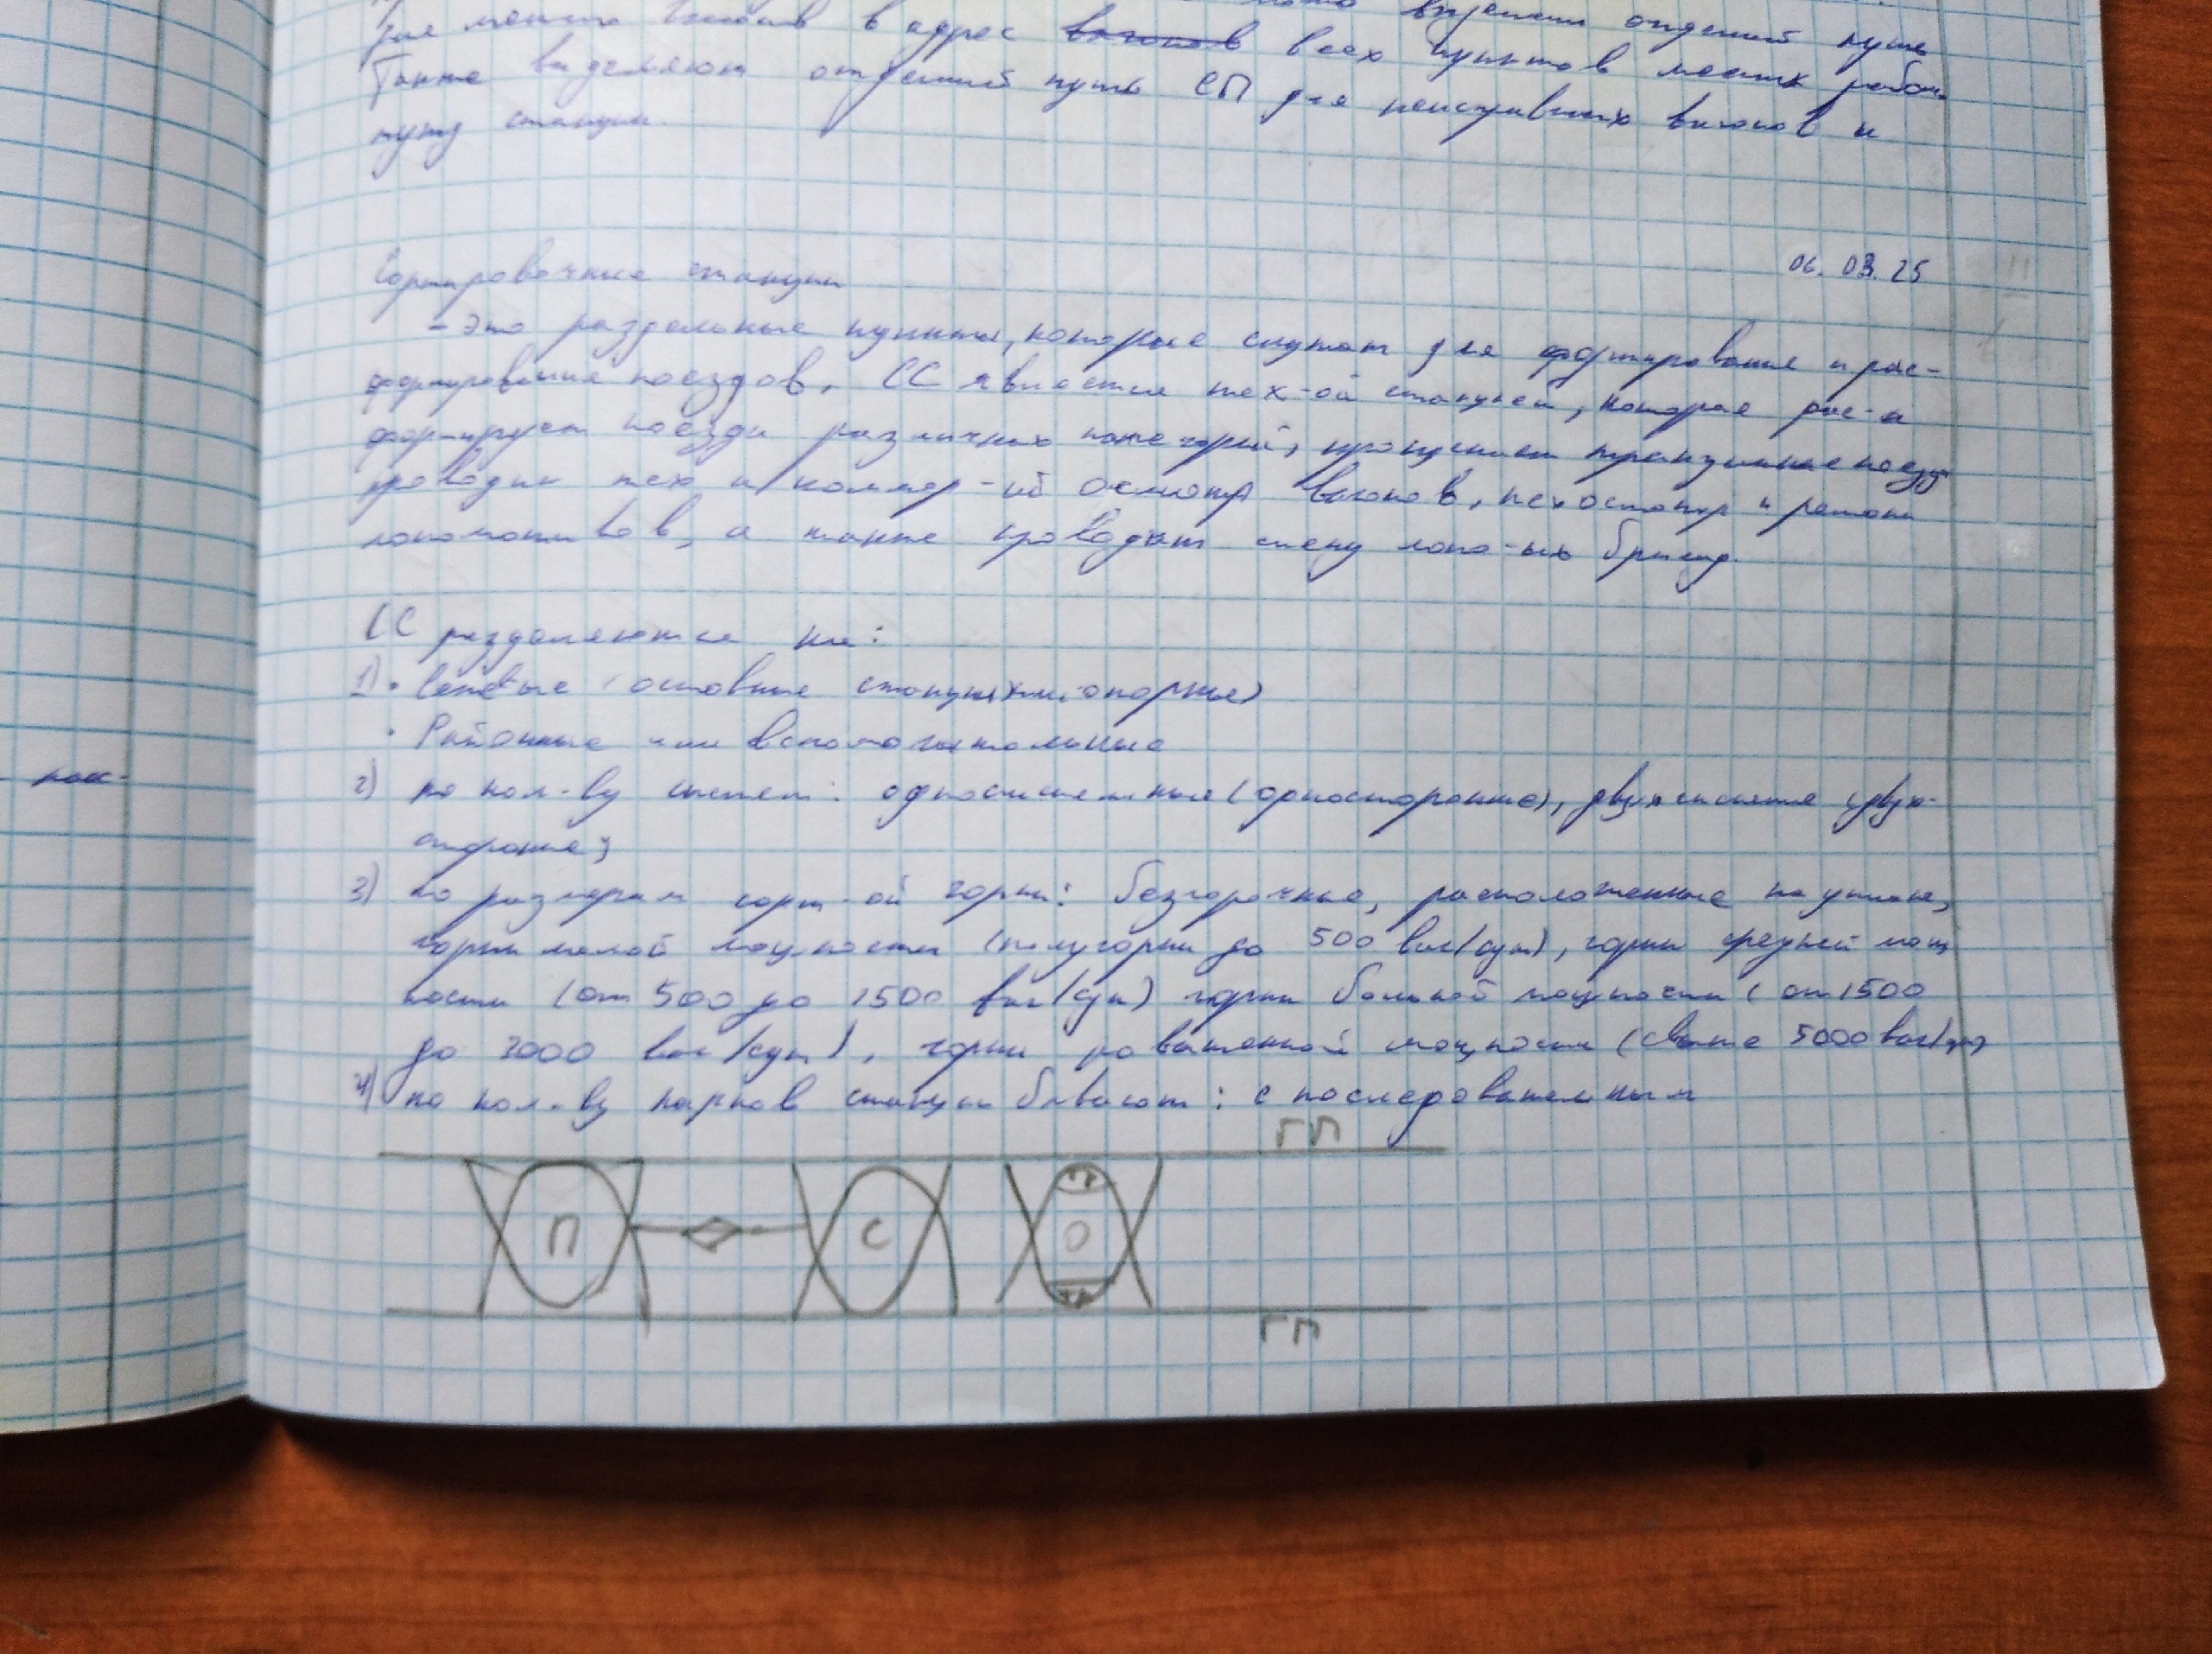 в адрес вагонов всех пунктов местн работы
Также выделяют отдельный путь СП для неисправных вагонов и
путь станции.
06.03.25
Сортировочные станции
- Это раздельные пункты, которые служат для формирования и рас-
формирования поездов. СС является тех-ой станцией, которая рас- и
формирует поезда различных категорий, пропускает транзитные поезда
проводит тех и коммер-ий осмотр вагонов, техосмотр и ремонт
локомотивов, а также проводят смену локо-ых бригад.
СС разделяются на:
1) • Сетевые (основные станции или опорные)
• Районные или вспомогательные
2) по кол-ву систем: односистемные (односторонние), двухсистемные (двух-
сторонние);
3) по размерам сорт-ой горки: безгорочные, расположенные на уклоне,
горки малой мощности (полугорки до 500 ваг/сут), горки средней мощ
ности (от 500 до 1500 ваг/сут) горки большой мощности (от 1500
до 3000 ваг/сут), горки повышенной мощности (свыше 5000 ваг/сут)
4) по кол-ву парков станции бывают: с последовательным
пас-
ГП
П С О
ГП